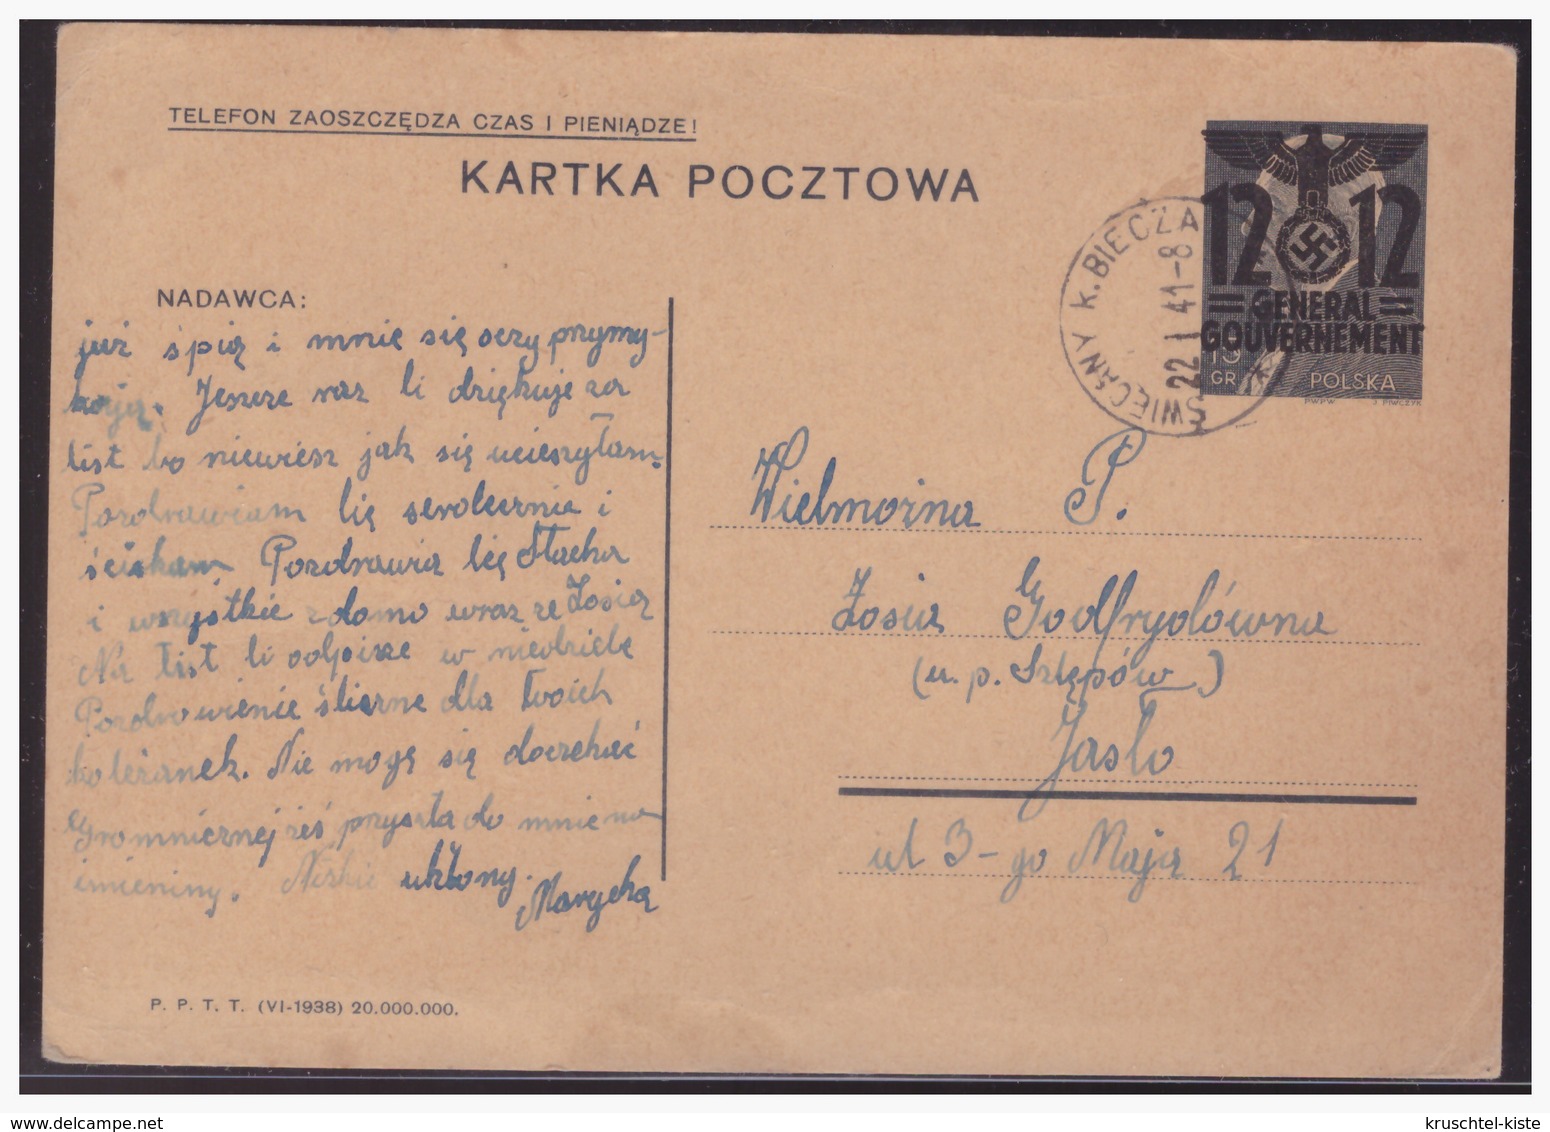 TELEFON ZAOSZCZĘDZA CZAS I PIENIĄDZE!
KARTKA POCZTOWA
12 12
GENERAL
GOUVERNEMENT
15
GR POLSKA
PWPW J. PIWCZYK
ŚWIĘCANY K. BIECZA
22 I 41-8
NADAWCA:
już śpią i mnie się oczy przymy-
kają. Jeszcze raz Ci dziękuje za
list bo niewiesz jak się ucieszyłam.
Pozdrawiam Cię serdecznie i
ściskam Pozdrawia Cię Stacha
i wszystkie z domo wraz ze Zosią
Na list Ci odpisze w niedziele
Pozdrowienie śliczne dla Twoich
koleżanek. Nie mogę się doczekać
Gromnicznej żeś przyszła do mnie na
imieniny. Niskie ukłony.
Marycha
Wielmożna P.
Zosia Godfrydówna
(u. p. Sztępów)
Jasło
ul 3-go Maja 21
P. P. T. T. (VI-1938) 20.000.000.
kruschtel-kiste